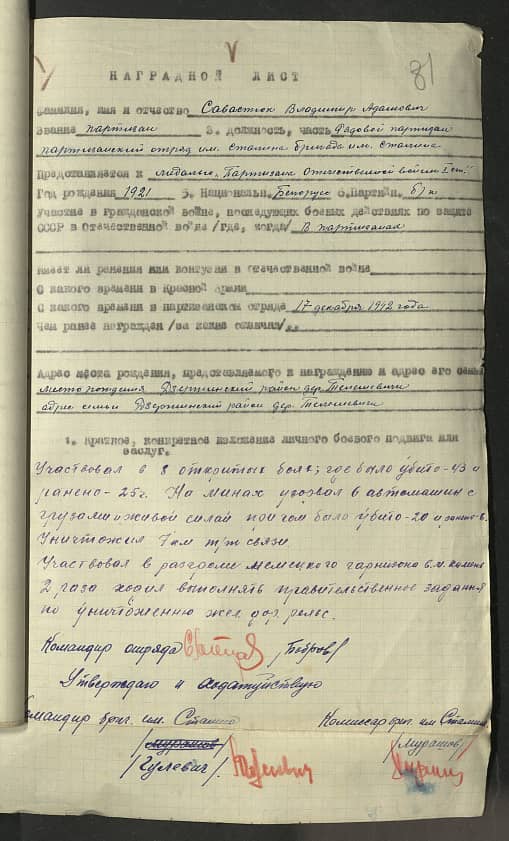 81
НАГРАДНОЙ ЛИСТ
Фамилия, имя и отчество Савастюк Владимир Адамович
Звание партизан 3. должность, часть Рядовой партизан
партизанский отряд им. Сталина бригады им. Сталина
Представляется к медалью „Партизан Отечественной войны I ст."
Год рождения 1921 5. Национальн. Белорус 6. Партийн. б/п
Участие в Гражданской войне, последующих боевых действиях по защите
СССР в Отечественной войне /где, когда/ В партизанах
Имеет ли ранения или контузии в отечественной войне
С какого времени в Красной Армии
С какого времени в партизанском отряде 17 декабря 1942 года
Чем ранее награжден /за какие отличия/
Адрес места рождения, представляемого к награждению и адрес его семьи
место рождения Дзержинский район дер. Телешевичи
адрес семьи Дзержинский район дер. Телешевичи
1. Краткое, конкретное изложение личного боевого подвига или
заслуг.
Участвовал в 8 открытых боях; где было убито-43 и
ранено-25г. На минах взорвал 2 автомашин с
грузами и живой силой причем было убито-20 и ранено-
Уничтожил 7 км т/т связи.
Участвовал в разгроме немецкого гарнизона в м.
2 раза ходил выполнять правительственное задания
по уничтожению жел. дор. рельс.
Командир отряда /Бобров/
Утверждаю и ходатайствую
командир бриг. им. Сталина Комиссар бриг. им Сталина
/Мурашов/ /Мурашов/
/Гулевич/